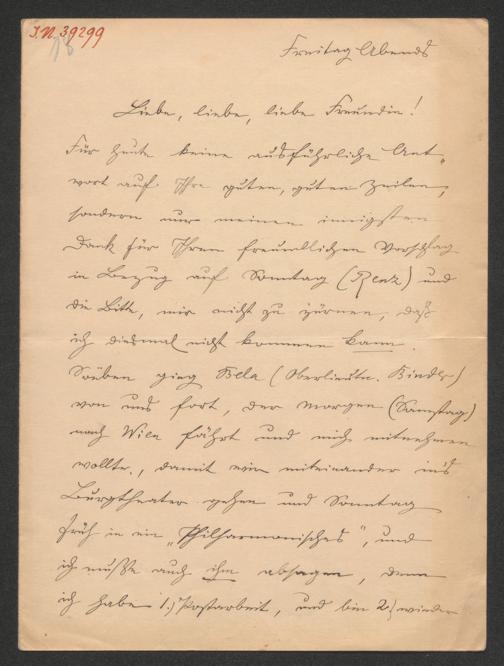 I.N. 39299
18
Freitag Abends
Liebe, liebe, liebe Freundin!
Für heute keine ausführliche Ant-
wort auf Ihre guten, guten Zeilen,
sondern nur meinen innigsten
Dank für Ihren freundlichen Vorschlag
in Bezug auf Sonntag (Renz) und
die Bitte, mir nicht zu zürnen, daß
ich diesmal nicht kommen kann.
Soeben ging Bela (Oberlieutn. Binder)
von uns fort, der morgen (Samstag)
nach Wien fährt und mich mitnehmen
wollte, damit wir miteinander in's
Burgtheater gehen und Sonntag
früh in ein „Philharmonisches", und
ich mußte auch ihm absagen, denn
ich habe 1.) Postarbeit, und bin 2.) wieder